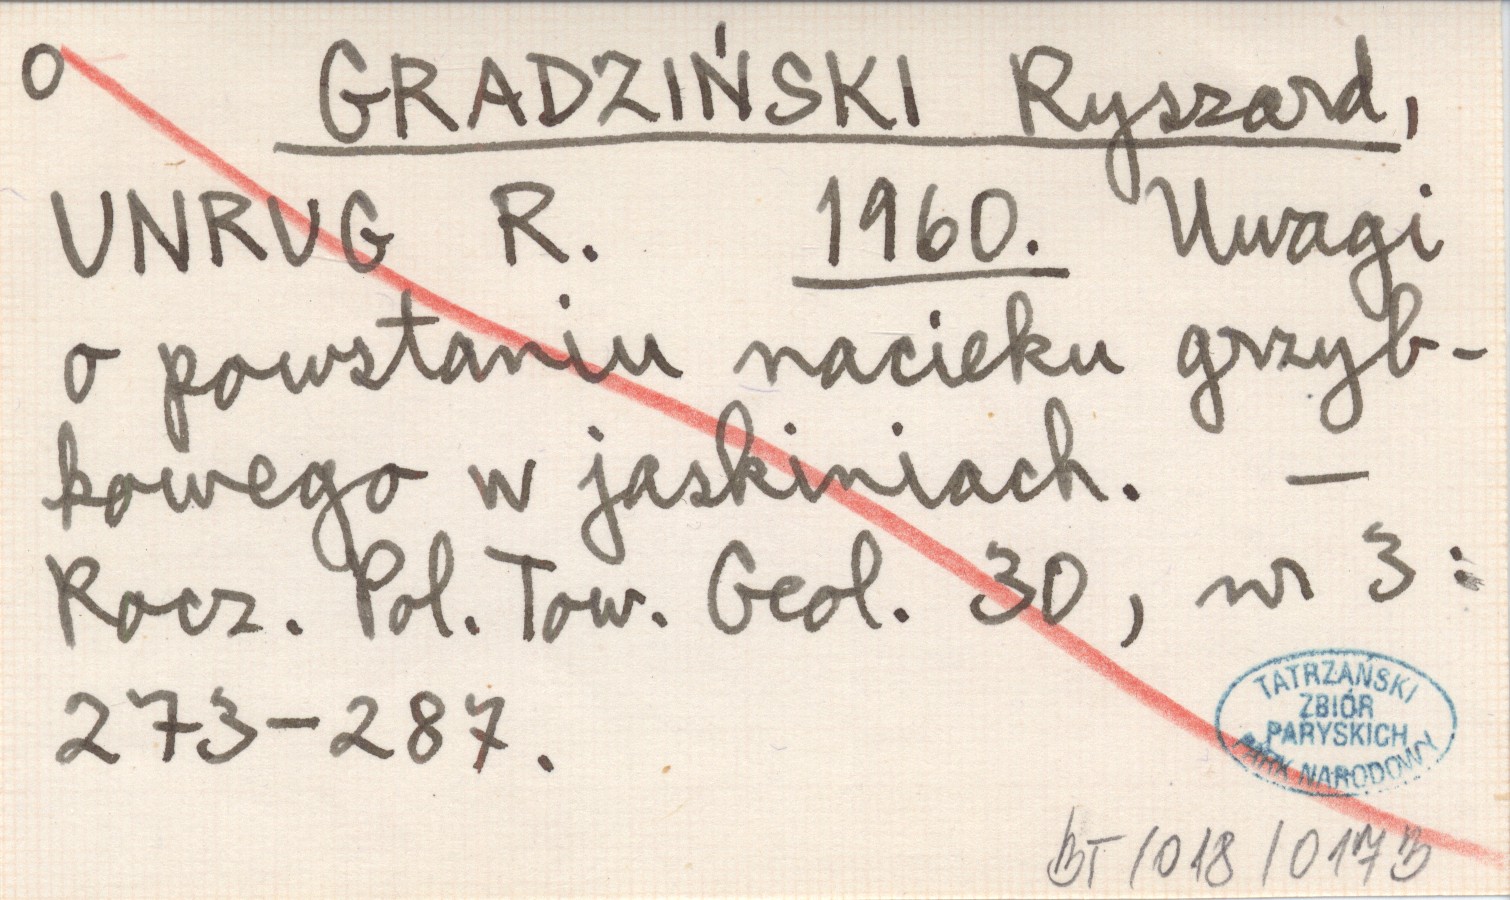 o GRADZIŃSKI Ryszard,
UNRUG R. 1960. Uwagi
o powstaniu nacieku grzyb-
kowego w jaskiniach. —
Rocz. Pol. Tow. Geol. 30, nr 3:
273-287.
TATRZAŃSKI
ZBIÓR
PARYSKICH
PARK NARODOWY
BT/018/0173